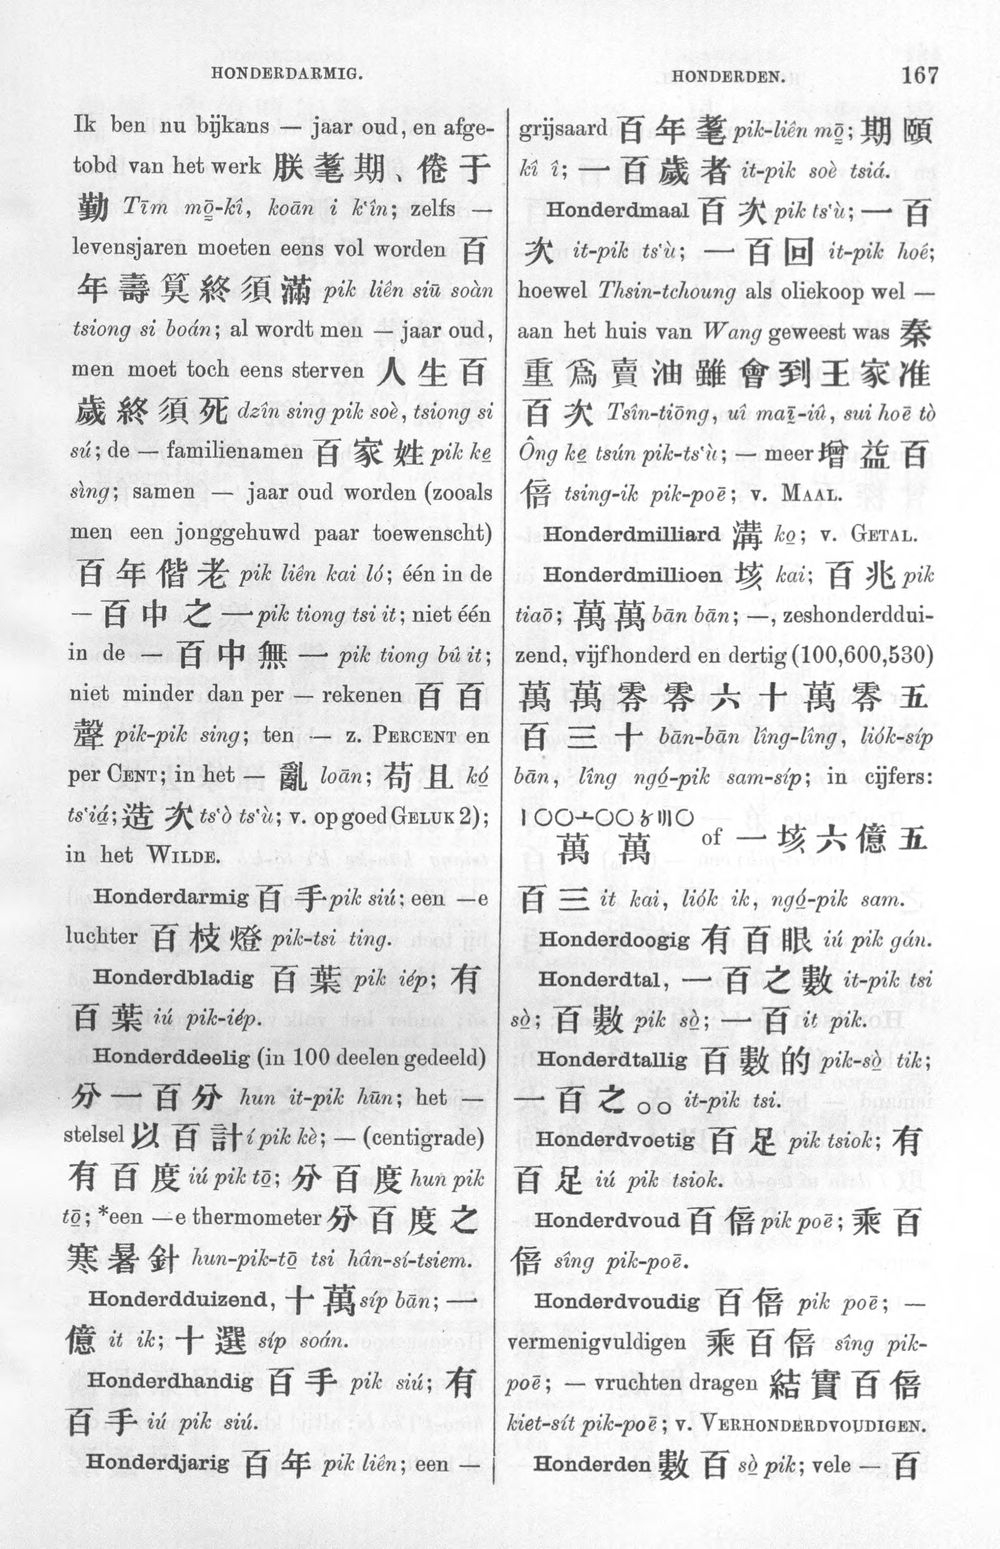 HONDERDARMIG.
HONDERDEN. 167
Ik ben nu bijkans — jaar oud, en afge-
tobd van het werk 朕耄期、倦于
勤 Tīm mō̤-kî, koān i k'în; zelfs —
levensjaren moeten eens vol worden 百
年壽筭終須滿 pik liên siū soàn
tsiong si boán; al wordt men — jaar oud,
men moet toch eens sterven 人生百
歲終須死 dzîn sing pik soè, tsiong si
sú; de — familienamen 百家姓 pik ke̱
sìng; samen — jaar oud worden (zooals
men een jonggehuwd paar toewenscht)
百年偕老 pik liên kai ló; één in de
— 百中之一 pik tiong tsi it; niet één
in de — 百中無一 pik tiong bû it;
niet minder dan per — rekenen 百百
聲 pik-pik sing; ten — z. PERCENT en
per CENT; in het — 亂 loān; 苟且 kó̱
ts'iá̱; 造次 ts'ò ts'ù; v. op goed GELUK 2);
in het WILDE.
Honderdarmig 百手 pik siú; een —e
luchter 百枝燈 pik-tsi ting.
Honderdbladig 百葉 pik iép; 有
百葉 iú pik-iép.
Honderddeelig (in 100 deelen gedeeld)
分一百分 hun it-pik hūn; het —
stelsel 以百計 í pik kè; — (centigrade)
有百度 iú pik tō̱; 分百度 hun pik
tō̱; *een —e thermometer 分百度之
寒暑針 hun-pik-tō̱ tsi hân-sí-tsiem.
Honderdduizend, 十萬 síp bān; 一
億 it ik; 十選 síp soán.
Honderdhandig 百手 pik siú; 有
百手 iú pik siú.
Honderdjarig 百年 pik liên; een —
grijsaard 百年耄 pik-liên mō̤; 期頤
kî î; 一百歲者 it-pik soè tsiá.
Honderdmaal 百次 pik ts'ù; 一百
次 it-pik ts'ù; 一百回 it-pik hoê;
hoewel Thsin-tchoung als oliekoop wel —
aan het huis van Wang geweest was 秦
重爲賣油雖會到王家准
百次 Tsîn-tiōng, uî maī̱-iû, sui hoē tò
Ông ke̱ tsún pik-ts'ù; — meer 增益百
倍 tsing-ik pik-poē; v. MAAL.
Honderdmilliard 溝 ko̱; v. GETAL.
Honderdmillioen 垓 kai; 百兆 pik
tiaō; 萬萬 bān bān; —, zeshonderddui-
zend, vijfhonderd en dertig (100,600,530)
萬萬零零六十萬零五
百三十 bān-bān lîng-lîng, liók-síp
bān, lîng ngó̱-pik sam-síp; in cijfers:
〡〇〇〦〇〇〥〣〇
萬 萬 of 一垓六億五
百三 it kai, liók ik, ngó̱-pik sam.
Honderdoogig 有百眼 iú pik gán.
Honderdtal, 一百之數 it-pik tsi
sò̱; 百數 pik sò̱; 一百 it pik.
Honderdtallig 百數的 pik-sò̱ tik;
一百之○○ it-pik tsi.
Honderdvoetig 百足 pik tsiok; 有
百足 iú pik tsiok.
Honderdvoud 百倍 pik poē; 乘百
倍 sîng pik-poē.
Honderdvoudig 百倍 pik poē; —
vermenigvuldigen 乘百倍 sîng pik-
poē; — vruchten dragen 結實百倍
kiet-sít pik-poē; v. VERHONDERDVOUDIGEN.
Honderden 數百 sò̱ pik; vele — 百